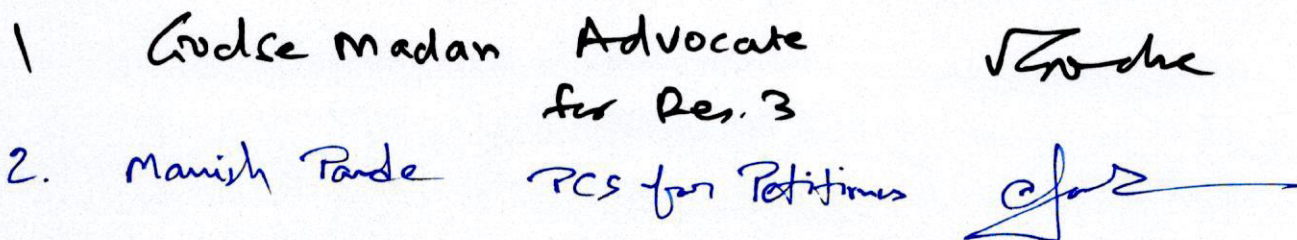 1 Godse Madan Advocate
for Res. 3
2. Manish Pande PCS for Petitioners